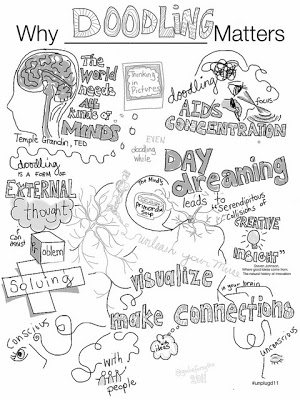 Why DOODLING Matters
THE
World
needs
ALL
kinds of
MINDS
Temple Grandin, TED
Thinking
in
Pictures
doodling
AIDS
CONCENTRATION
focus
EVEN
doodling
while
DAY
dreaming
leads to serendipitous
collisions of
CREATIVE
INSIGHT"
Steven Johnson,
Where good ideas come from,
The natural history of innovation
doodling
IS A FORM OF
EXTERNAL
thought
The Mind's
Primordial
Soup
unleash your Muses
can assist
Problem
Solving
visualize
in your brain
make CONNECTIONS
Conscious
with
ideas
with
people
unconscious
2011
#unplugd11